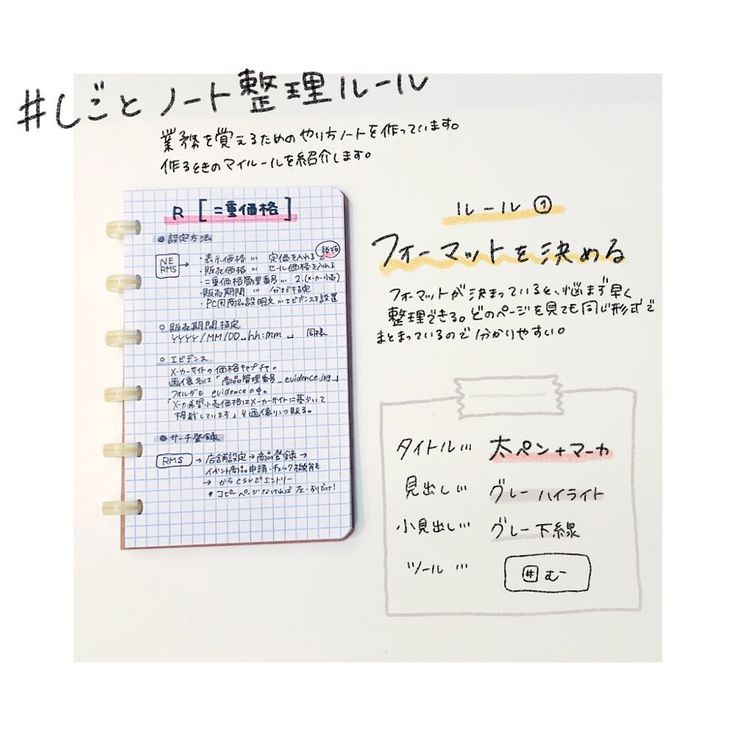 #しごとノート整理ルール
業務を覚えるためのやり方ノートを作っています。
作るときのマイルールを紹介します。
R [二重価格]
設定方法
NE
RMS
・表示価格 … 定価を入れる
・販売価格 … セール価格を入れる
・二重価格管理番号 … 2.(メーカー小売)
・販売期間 … 分まで指定
・PC用商品説明文 … エビデンスを設置
販売期間指定
YYYY/MM/DD␣hh:mm
エビデンス
メーカーサイトの価格をキャプチャ。
画像名は「商品管理番号_evidence.jpg」
フォルダも evidence
「メーカー希望小売価格はメーカーサイトに基づいて
掲載しています」を画像リンク貼る。
サーチ登録
RMS → 店舗設定 → 商品登録 →
イベント商品申請・チェック機能を
→ からCSVでエントリー
ルール①
フォーマットを決める
フォーマットが決まっていると、悩まず早く
整理できる。どのページを見ても同じ形式で
まとまっているので分かりやすい。
タイトル… 太ペン+マーカ
見出し… グレーハイライト
小見出し… グレー下線
ツール… # む